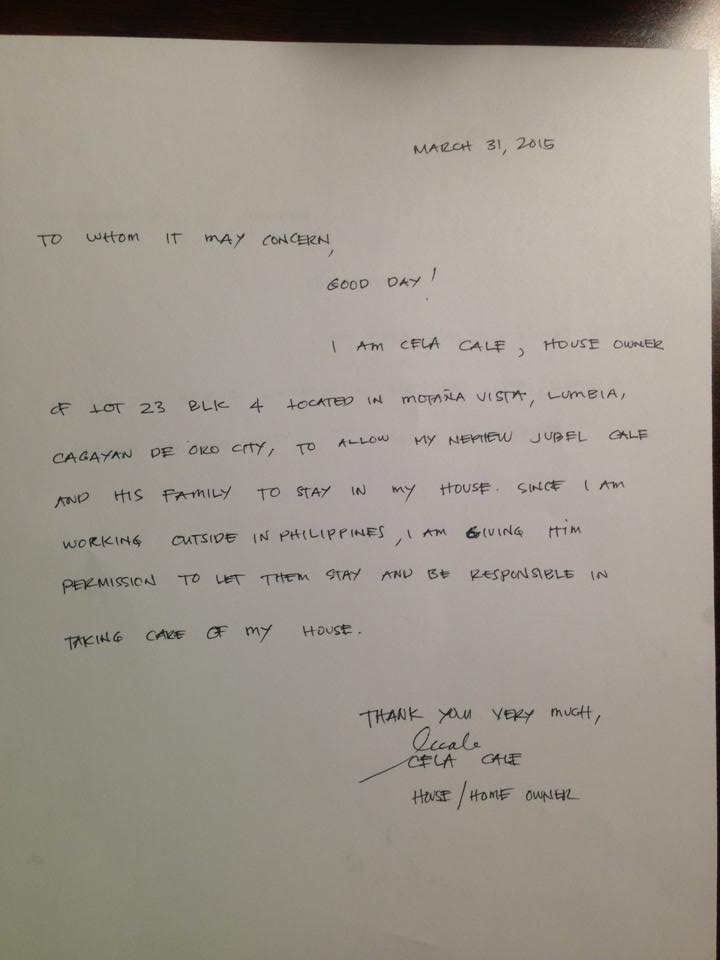 MARCH 31, 2015
TO WHOM IT MAY CONCERN,
GOOD DAY!
I AM CELA CALE, HOUSE OWNER
OF LOT 23 BLK 4 LOCATED IN MOTAÑA VISTA, LUMBIA,
CAGAYAN DE ORO CITY, TO ALLOW MY NEPHEW JUBEL CALE
AND HIS FAMILY TO STAY IN MY HOUSE. SINCE I AM
WORKING OUTSIDE IN PHILIPPINES, I AM GIVING HIM
PERMISSION TO LET THEM STAY AND BE RESPONSIBLE IN
TAKING CARE OF MY HOUSE.
THANK YOU VERY MUCH,
CELA CALE
HOUSE/HOME OWNER